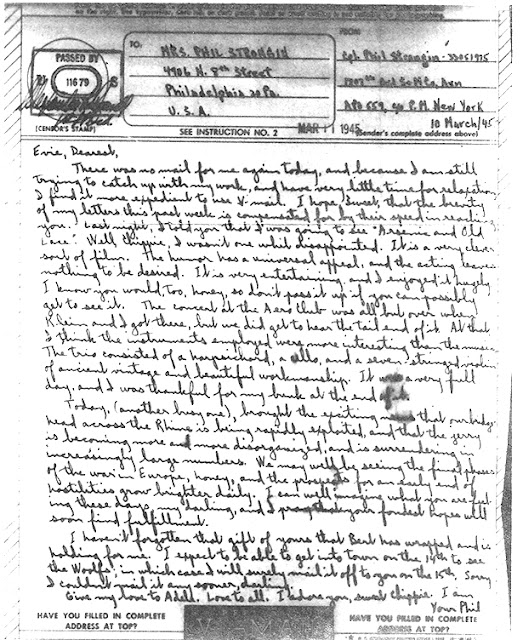 TO:
MRS. PHIL STRONGIN
4906 N. 8th Street
Philadelphia 20 Pa.
U. S. A.
FROM
Cpl. Phil Strongin - 33051975
Co., Avn
APO 559, c/o P.M. New York
10 March/45
(Sender's complete address above)
PASSED BY
U S
11679
(CENSOR'S STAMP)
SEE INSTRUCTION NO. 2
MAR 11 1945
Evie, Dearest,
There was no mail for me again today, and because I am still
trying to catch up with my work, and have very little time for relaxation
I find it more expedient to use V-mail. I hope, Sweet, that the brevity
of my letters this past week is compensated for by their speed in reaching
you. Last night, I told you that I was going to see "Arsenic and Old
Lace". Well Chippie, I wasn't one whit disappointed. It is a very clever
sort of film. The humor has a universal appeal, and the acting leaves
nothing to be desired. It is very entertaining, and I enjoyed it hugely
I know you would, too, honey, so don't pass it up if you can possibly
get to see it. The concert at the Aero Club was all but over when
Klein and I got there, but we did get to hear the tail end of it. At that
I think the instruments employed were more interesting than the music.
The trio consisted of a harpsichord, a cello, and a seven-stringed violin
of ancient vintage and beautiful workmanship. It was a very full
day, and I was thankful for my bunk at the end of it.
Today, (another busy one), brought the exciting news that our bridge
head across the Rhine is being rapidly exploited, and that the jerry
is becoming more and more disorganized, and is surrendering in
increasingly large numbers. We may well be seeing the final phases
of the war in Europe, honey, and the prospects for an early end of
hostilities grow brighter daily. I can well imagine what you are feel-
ing these days, my darling, and I pray that your fondest hopes will
soon find fulfillment.
I haven't forgotten that gift of yours that Bert has wrapped and is
holding for me. I expect to be able to get into town on the 14th to see
the Woolfs, in which case I will surely mail it off to you on the 15th. Sorry
I couldn't mail it any sooner, darling.
Give my love to Adell. Love to all. I adore you, sweet Chippie. I am
Your Phil
HAVE YOU FILLED IN COMPLETE
ADDRESS AT TOP?
HAVE YOU FILLED IN COMPLETE
ADDRESS AT TOP?